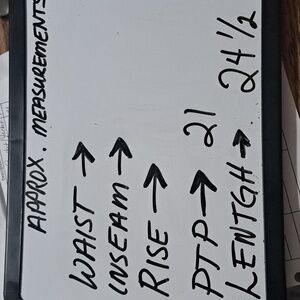 APPROX. MEASUREMENTS
WAIST →
INSEAM →
RISE →
PTP → 21
LENTGH → 24 1/2